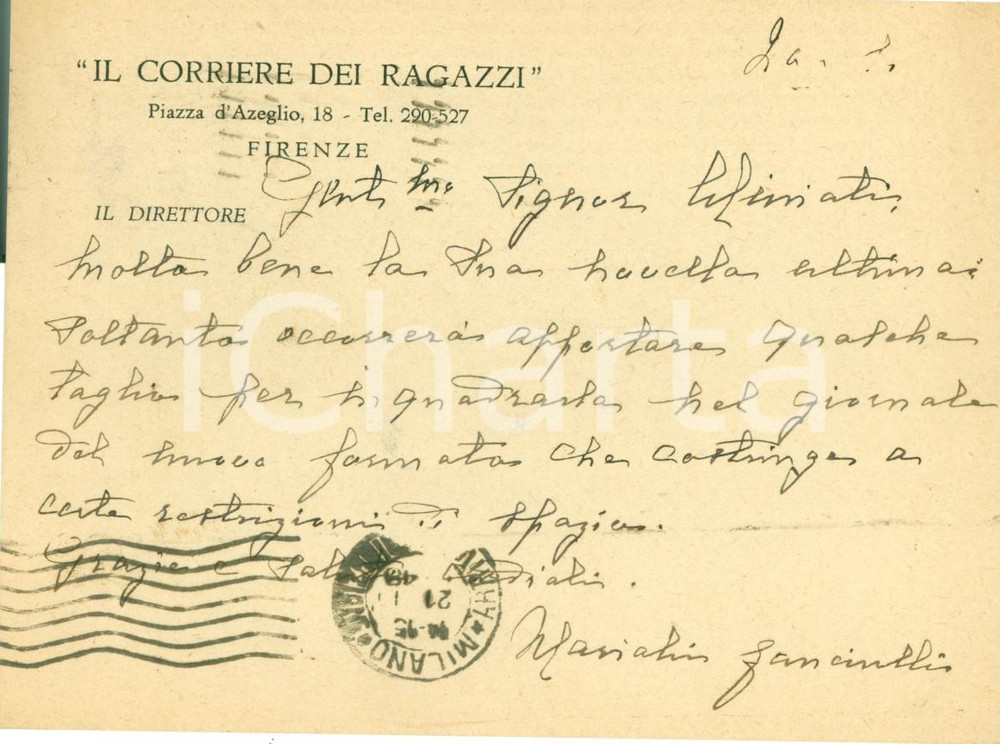 "IL CORRIERE DEI RAGAZZI"
Piazza d'Azeglio, 18 - Tel. 290-527
FIRENZE
IL DIRETTORE
Gent.mo Signor Miniati,
molto bene la Sua novella ultima:
soltanto occorrerà apportare qualche
taglio per inquadrarla nel giornale
del nuovo formato che costringe a
certe restrizioni di spazio.
Grazie e saluti cordiali.
MILANO
21
iCharta